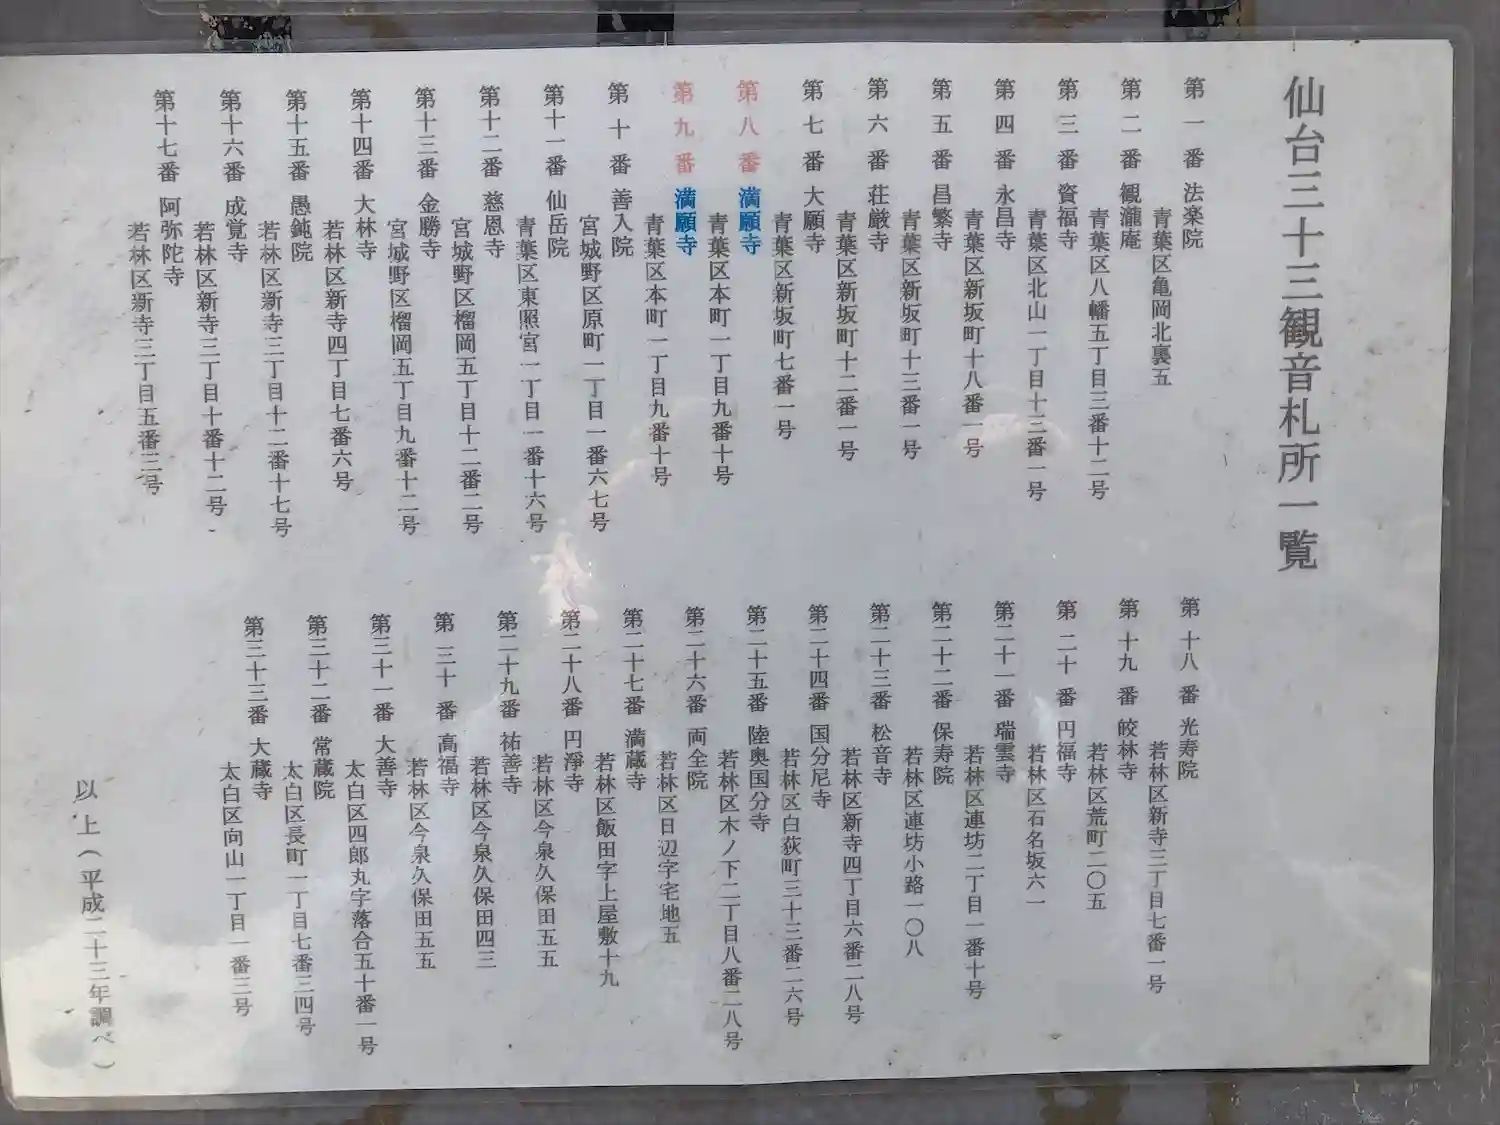 仙台三十三観音札所一覧
第一番 法楽院
青葉区亀岡北裏五
第二番 観瀧庵
青葉区八幡五丁目三番十二号
第三番 資福寺
青葉区北山一丁目十三番一号
第四番 永昌寺
青葉区新坂町十八番一号
第五番 昌繁寺
青葉区新坂町十三番一号
第六番 荘厳寺
青葉区新坂町十二番一号
第七番 大願寺
青葉区新坂町七番一号
第八番 満願寺
青葉区本町一丁目九番十号
第九番 満願寺
青葉区本町一丁目九番十号
第十番 善入院
宮城野区原町一丁目一番六七号
第十一番 仙岳院
青葉区東照宮一丁目一番十六号
第十二番 慈恩寺
宮城野区榴岡五丁目十二番二号
第十三番 金勝寺
宮城野区榴岡五丁目九番十二号
第十四番 大林寺
若林区新寺四丁目七番六号
第十五番 愚鈍院
若林区新寺三丁目十二番十七号
第十六番 成覚寺
若林区新寺三丁目十番十二号
第十七番 阿弥陀寺
若林区新寺三丁目五番三号
第十八番 光寿院
若林区新寺三丁目七番一号
第十九番 皎林寺
若林区荒町二〇五
第二十番 円福寺
若林区石名坂六一
第二十一番 瑞雲寺
若林区連坊二丁目一番十号
第二十二番 保寿院
若林区連坊小路一〇八
第二十三番 松音寺
若林区新寺四丁目六番二八号
第二十四番 国分尼寺
若林区白萩町三十三番二六号
第二十五番 陸奥国分寺
若林区木ノ下二丁目八番二八号
第二十六番 両全院
若林区日辺字宅地五
第二十七番 満蔵寺
若林区飯田字上屋敷十九
第二十八番 円浄寺
若林区今泉久保田五五
第二十九番 祐善寺
若林区今泉久保田四三
第三十番 高福寺
若林区今泉久保田五五
第三十一番 大善寺
太白区四郎丸字落合五十番一号
第三十二番 常蔵院
太白区長町一丁目七番三四号
第三十三番 大蔵寺
太白区向山一丁目一番三号
以上(平成二十三年調べ)